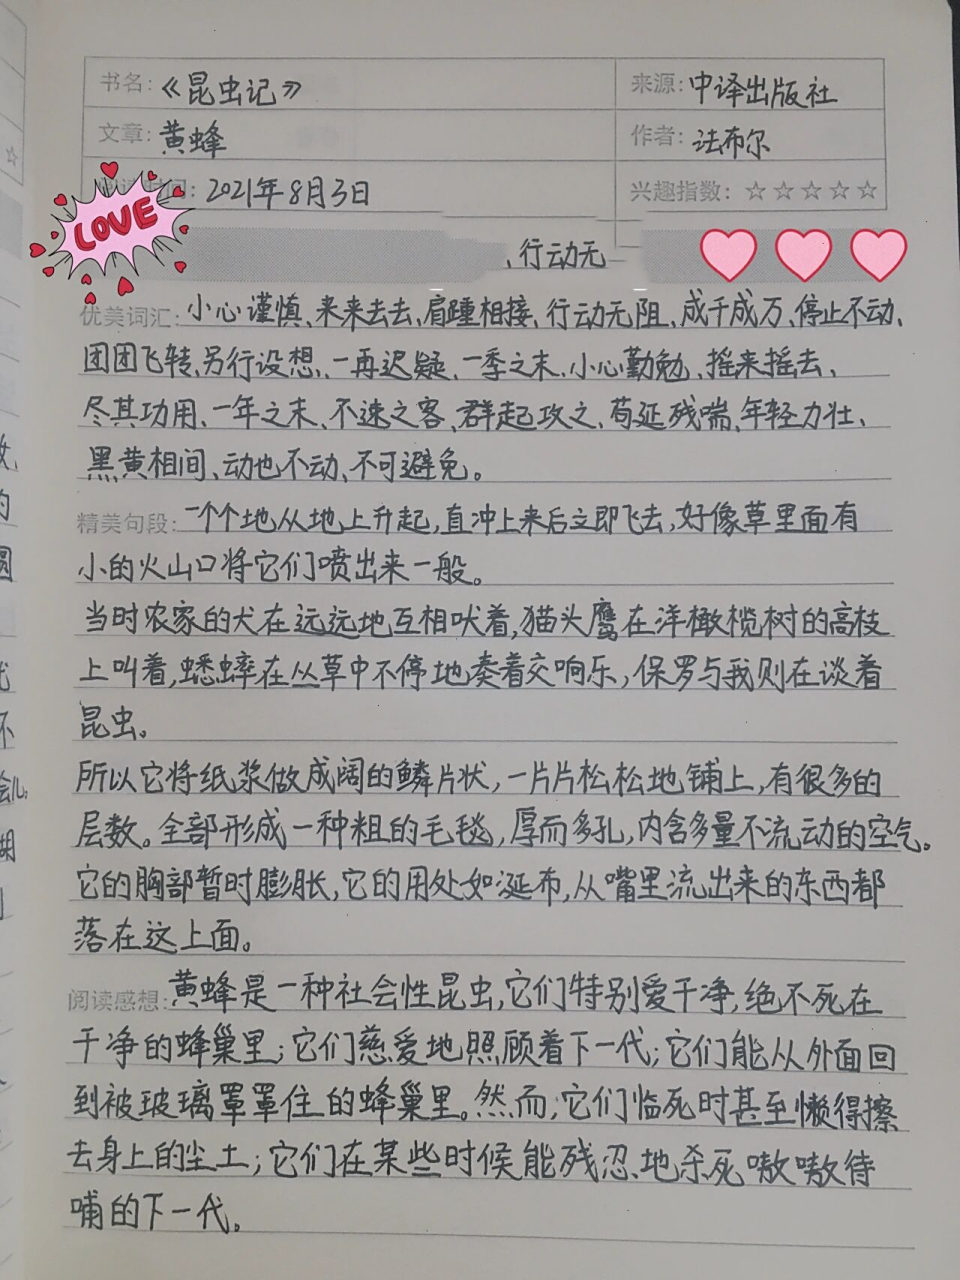 书名：《昆虫记》 来源：中译出版社
文章：黄蜂 作者：法布尔
间：2021年8月3日 兴趣指数：☆☆☆☆☆
LOVE
、行动无
优美词汇：小心谨慎、来来去去、肩踵相接、行动无阻、成千成万、停止不动、
团团飞转、另行设想、一再迟疑、一季之末、小心勤勉、摇来摇去、
尽其功用、一年之末、不速之客、群起攻之、苟延残喘、年轻力壮、
黑黄相间、动也不动、不可避免。
精美句段：一个个地从地上升起，直冲上来后立即飞去，好像草里面有
小的火山口将它们喷出来一般。
当时农家的犬在远远地互相吠着，猫头鹰在洋橄榄树的高枝
上叫着，蟋蟀在丛草中不停地奏着交响乐，保罗与我则在谈着
昆虫。
所以它将纸浆做成阔的鳞片状，一片片松松地铺上，有很多的
层数。全部形成一种粗的毛毯，厚而多孔，内含多量不流动的空气。
它的胸部暂时膨胀，它的用处如涎布，从嘴里流出来的东西都
落在这上面。
阅读感想：黄蜂是一种社会性昆虫，它们特别爱干净，绝不死在
干净的蜂巢里；它们慈爱地照顾着下一代；它们能从外面回
到被玻璃罩罩住的蜂巢里。然而，它们临死时甚至懒得擦
去身上的尘土；它们在某些时候能残忍地杀死嗷嗷待
哺的下一代。